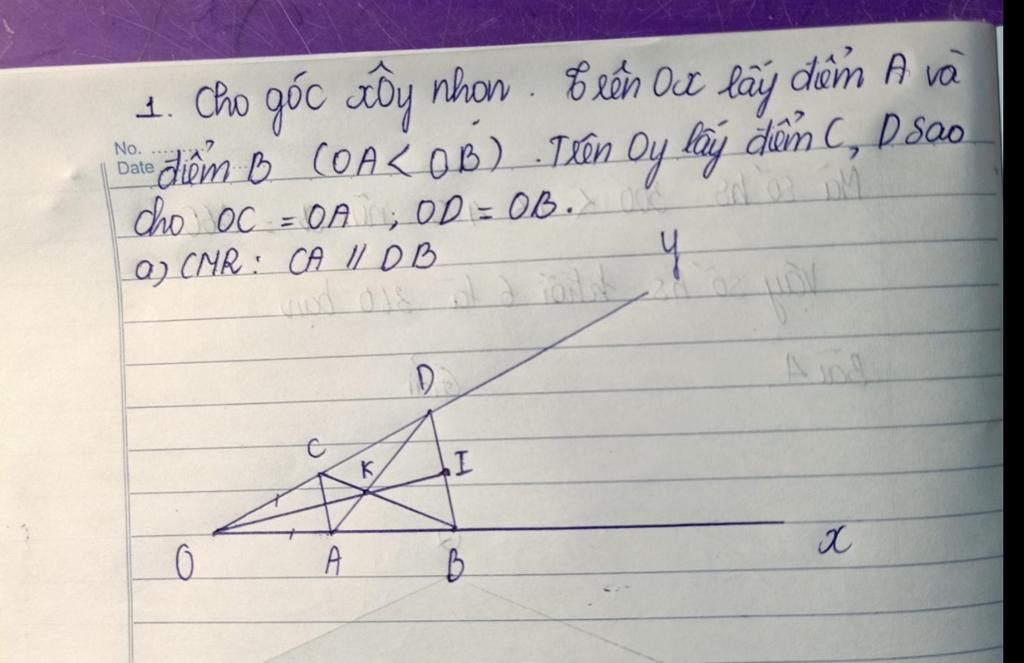 1. Cho góc xÔy nhọn. Trên Ox lấy điểm A và
No. ..........
Date
điểm B (OA < OB). Trên Oy lấy điểm C, D sao
cho OC = OA ; OD = OB.
a) CMR: CA // DB
y
D
C
K
I
O
A
B
x